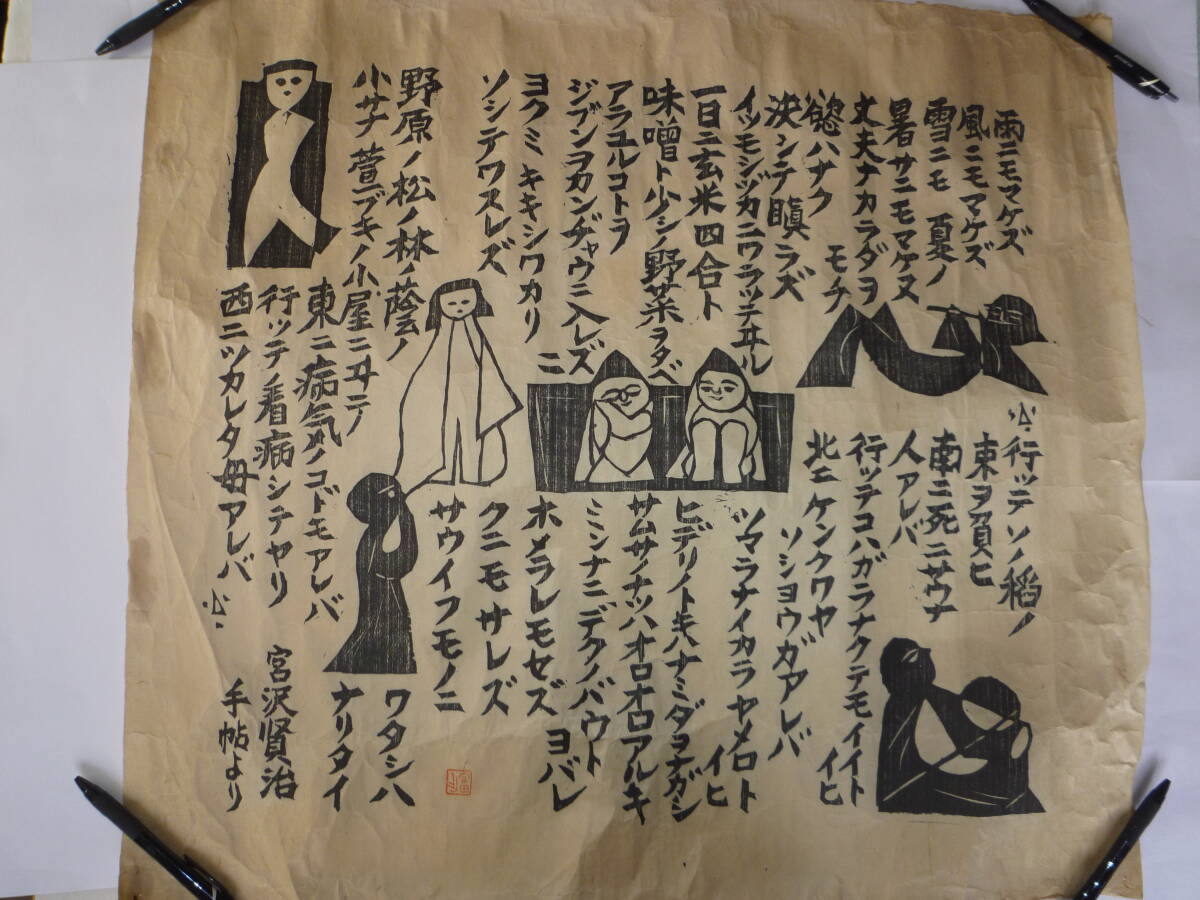 雨ニモマケズ
風ニモマケズ
雪ニモ 夏ノ
暑サニモマケヌ
丈夫ナカラダヲ
モチ
慾ハナク
決シテ瞋ラズ
イツモシヅカニワラッテヰル
一日ニ玄米四合ト
味噌ト少シノ野菜ヲタベ
アラユルコトヲ
ジブンヲカンヂャウニ入レズ
ニ
ヨクミキキシワカリ
ソシテワスレズ
野原ノ松ノ林ノ蔭ノ
小サナ萱ブキノ小屋ニヰテ
東ニ病気ノコドモアレバ
行ッテ看病シテヤリ
西ニツカレタ母アレバ
行ッテソノ稲ノ
束ヲ負ヒ
南ニ死ニサウナ
人アレバ
行ッテコハガラナクテモイイト
イヒ
北ニケンクワヤ
ソショウガアレバ
ツマラナイカラヤメロト
イヒ
ヒデリノトキハナミダヲナガシ
サムサノナツハオロオロアルキ
ミンナニデクノバウト
ヨバレ
ホメラレモセズ
クニモサレズ
サウイフモノニ
ワタシハ
ナリタイ
宮沢賢治
手帖より